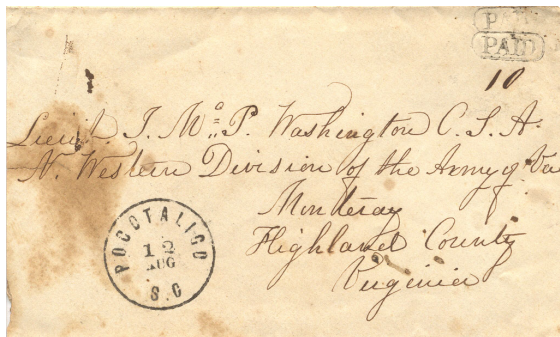 PAID
PAID
10
Lieut. J. Mc. P. Washington C. S. A.
N. Western Division of the Army of Va
Monteray
Highland County
Virginia
POCOTALIGO
12
AUG
S.C